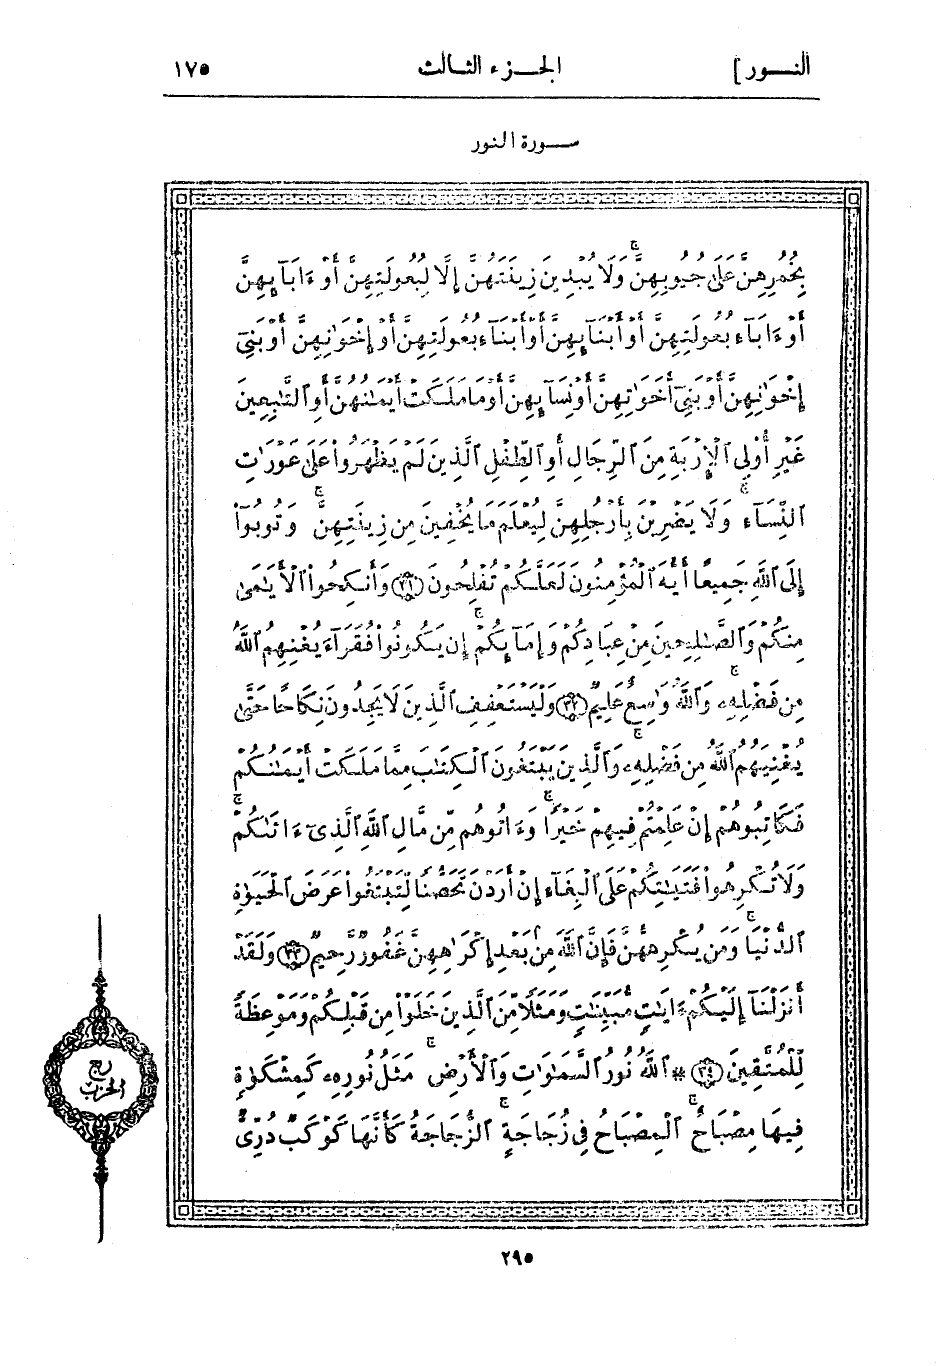 النـــور ]
الجـــزء الثـالث
١٧٥
ســـورة النور
بِخُمُرِهِنَّ عَلَىٰ جُيُوبِهِنَّ ۖ وَلَا يُبْدِينَ زِينَتَهُنَّ إِلَّا لِبُعُولَتِهِنَّ أَوْ ءَابَآئِهِنَّ
أَوْ ءَابَآءِ بُعُولَتِهِنَّ أَوْ أَبْنَآئِهِنَّ أَوْ أَبْنَآءِ بُعُولَتِهِنَّ أَوْ إِخْوَٰنِهِنَّ أَوْ بَنِىٓ
إِخْوَٰنِهِنَّ أَوْ بَنِىٓ أَخَوَٰتِهِنَّ أَوْ نِسَآئِهِنَّ أَوْ مَا مَلَكَتْ أَيْمَٰنُهُنَّ أَوِ ٱلتَّٰبِعِينَ
غَيْرِ أُوْلِى ٱلْإِرْبَةِ مِنَ ٱلرِّجَالِ أَوِ ٱلطِّفْلِ ٱلَّذِينَ لَمْ يَظْهَرُوا۟ عَلَىٰ عَوْرَٰتِ
ٱلنِّسَآءِ ۚ وَلَا يَضْرِبْنَ بِأَرْجُلِهِنَّ لِيُعْلَمَ مَا يُخْفِينَ مِن زِينَتِهِنَّ ۚ وَتُوبُوٓا۟
إِلَى ٱللَّهِ جَمِيعًا أَيُّهَ ٱلْمُؤْمِنُونَ لَعَلَّكُمْ تُفْلِحُونَ ﴿٣١﴾ وَأَنكِحُوا۟ ٱلْأَيَٰمَىٰ
مِنكُمْ وَٱلصَّٰلِحِينَ مِنْ عِبَادِكُمْ وَإِمَآئِكُمْ ۚ إِن يَكُونُوا۟ فُقَرَآءَ يُغْنِهِمُ ٱللَّهُ
مِن فَضْلِهِۦ ۗ وَٱللَّهُ وَٰسِعٌ عَلِيمٌ ﴿٣٢﴾ وَلْيَسْتَعْفِفِ ٱلَّذِينَ لَا يَجِدُونَ نِكَاحًا حَتَّىٰ
يُغْنِيَهُمُ ٱللَّهُ مِن فَضْلِهِۦ ۗ وَٱلَّذِينَ يَبْتَغُونَ ٱلْكِتَٰبَ مِمَّا مَلَكَتْ أَيْمَٰنُكُمْ
فَكَاتِبُوهُمْ إِنْ عَلِمْتُمْ فِيهِمْ خَيْرًا ۖ وَءَاتُوهُم مِّن مَّالِ ٱللَّهِ ٱلَّذِىٓ ءَاتَىٰكُمْ ۚ
وَلَا تُكْرِهُوا۟ فَتَيَٰتِكُمْ عَلَى ٱلْبِغَآءِ إِنْ أَرَدْنَ تَحَصُّنًا لِّتَبْتَغُوا۟ عَرَضَ ٱلْحَيَوٰةِ
ٱلدُّنْيَا ۚ وَمَن يُكْرِههُّنَّ فَإِنَّ ٱللَّهَ مِنۢ بَعْدِ إِكْرَٰهِهِنَّ غَفُورٌ رَّحِيمٌ ﴿٣٣﴾ وَلَقَدْ
أَنزَلْنَآ إِلَيْكُمْ ءَايَٰتٍ مُّبَيِّنَٰتٍ وَمَثَلًا مِّنَ ٱلَّذِينَ خَلَوْا۟ مِن قَبْلِكُمْ وَمَوْعِظَةً
لِّلْمُتَّقِينَ ﴿٣٤﴾ * ٱللَّهُ نُورُ ٱلسَّمَٰوَٰتِ وَٱلْأَرْضِ ۚ مَثَلُ نُورِهِۦ كَمِشْكَوٰةٍ
فِيهَا مِصْبَاحٌ ۖ ٱلْمِصْبَاحُ فِى زُجَاجَةٍ ۖ ٱلزُّجَاجَةُ كَأَنَّهَا كَوْكَبٌ دُرِّىٌّ
ربع
الحزب
٢٩٥